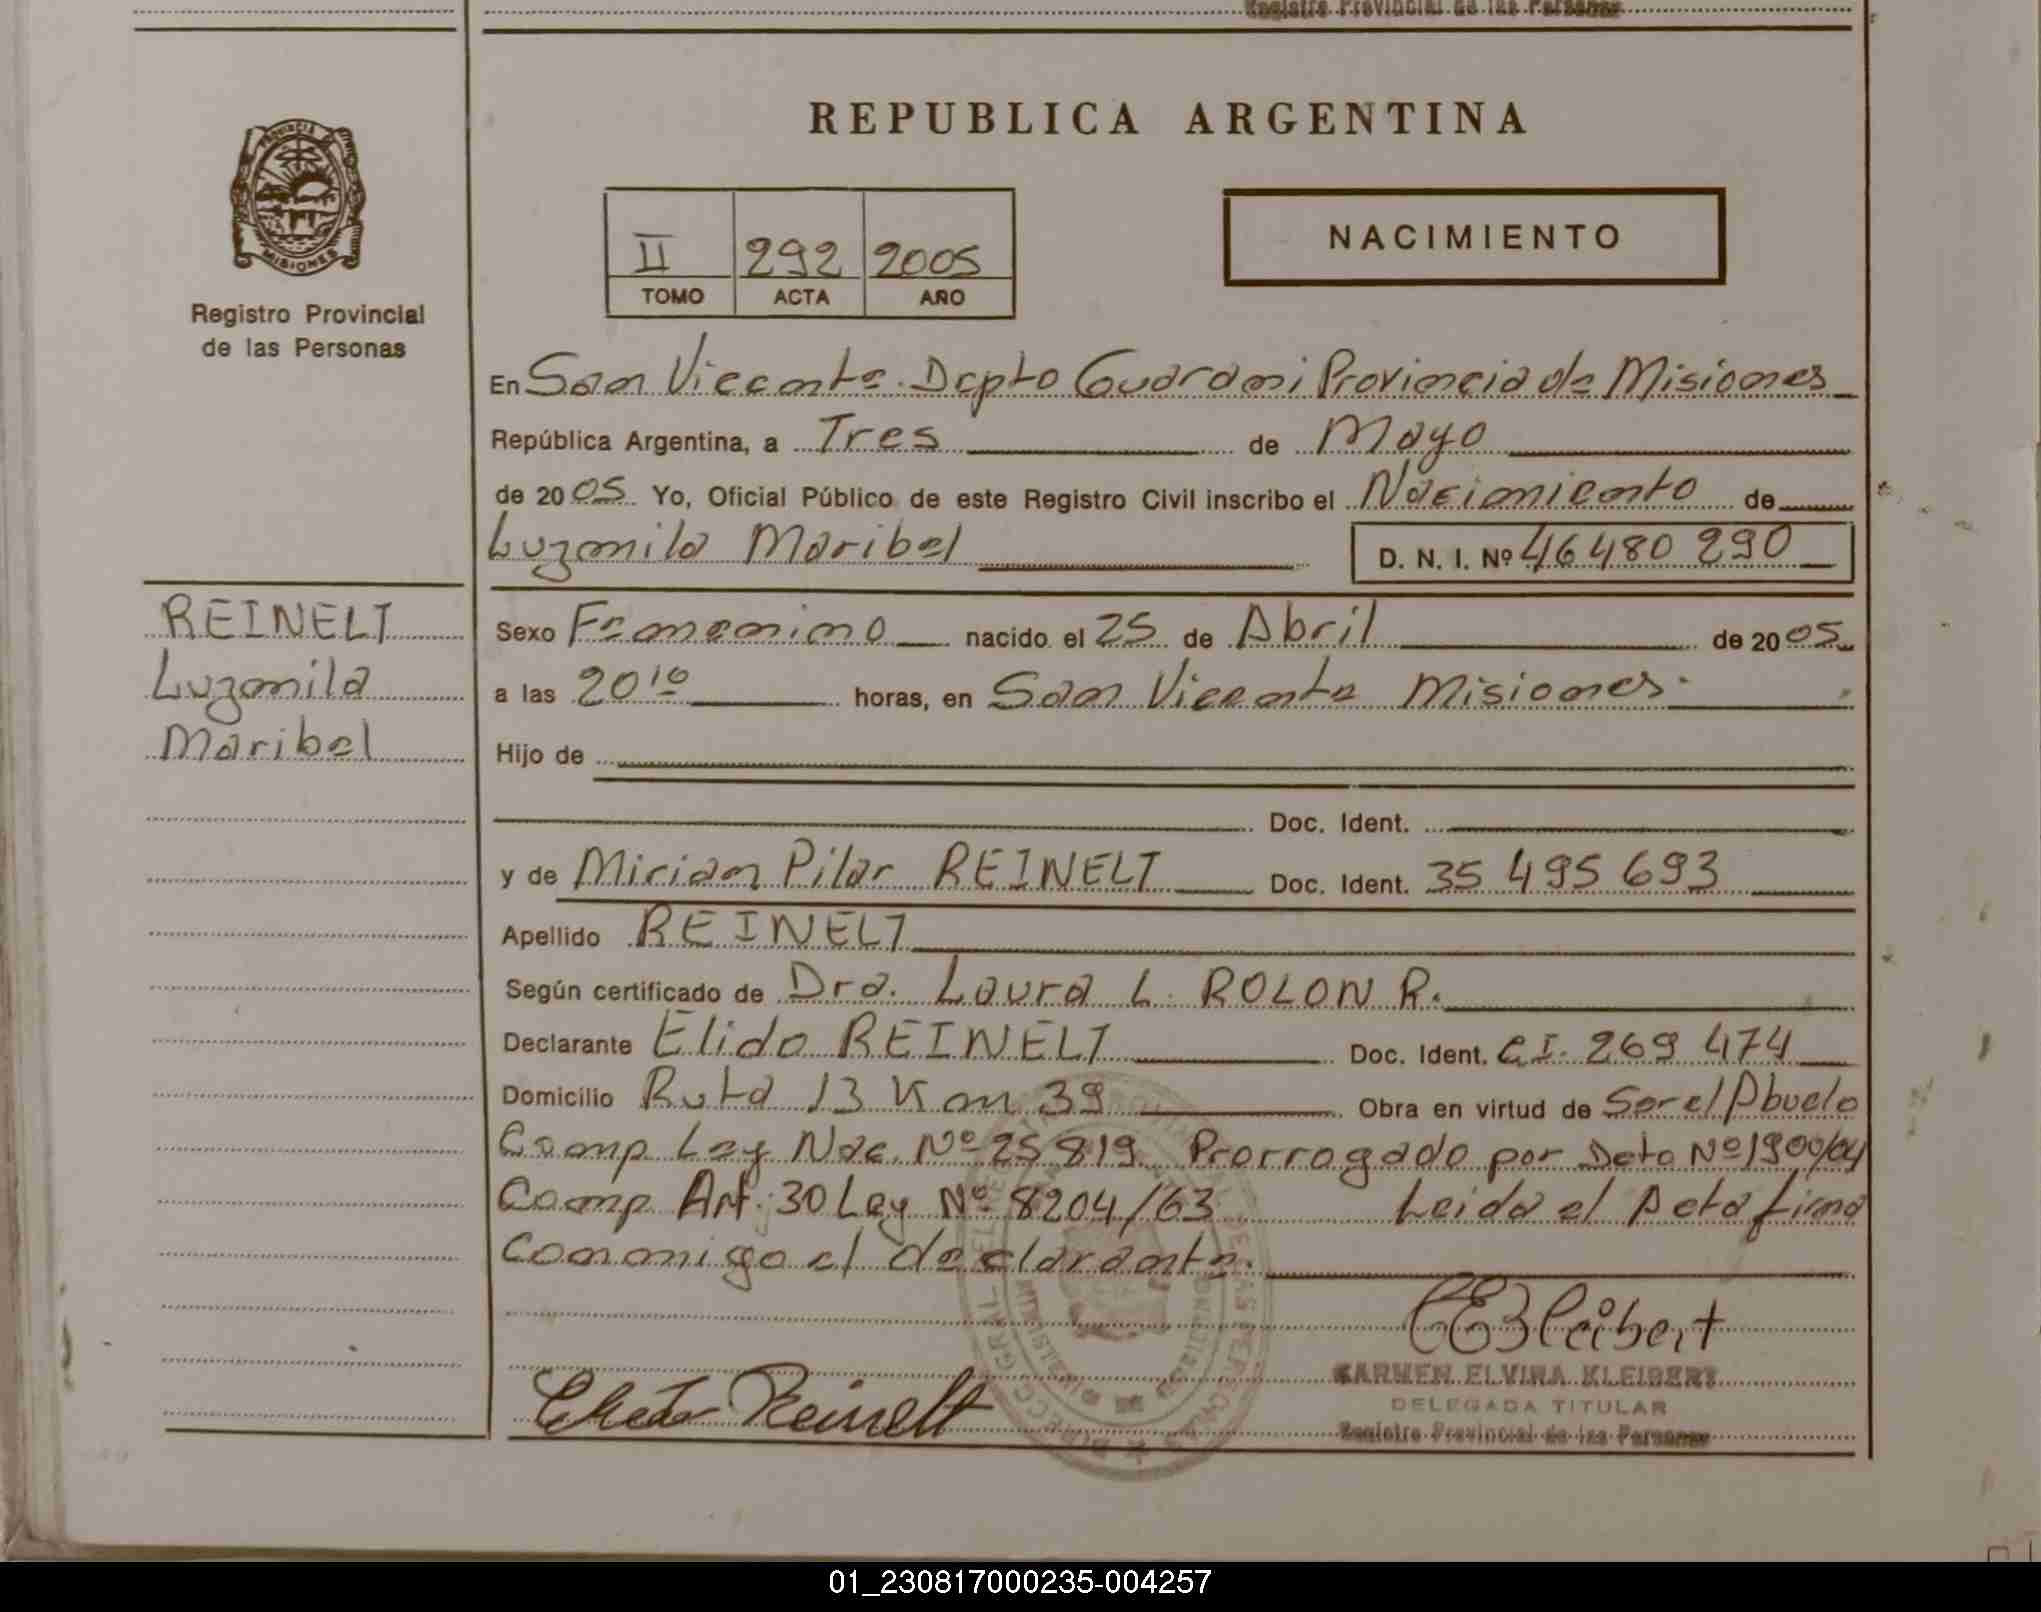 Registro Provincial de las Personas
REPUBLICA ARGENTINA
PROVINCIA
MISIONES
Registro Provincial
de las Personas
II 292 2005
TOMO ACTA AÑO
NACIMIENTO
En San Vicente. Dcpto Guarani Provincia de Misiones
República Argentina, a Tres de Mayo
de 2005 Yo, Oficial Público de este Registro Civil inscribo el Nacimiento de
Luzmila Maribel D. N. I. Nº 46 480 290
REINELT
Luzmila
Maribel
Sexo Femenino nacido el 25 de Abril de 2005
a las 20¹⁰ horas, en San Vicente Misiones.
Hijo de
Doc. Ident.
y de Miriam Pilar REINELT Doc. Ident. 35 495 693
Apellido REINELT
Según certificado de Dra. Laura L. ROLON R.
Declarante Elido REINELT Doc. Ident. C.I. 269 474
Domicilio Ruta 13 Km 39 Obra en virtud de Ser el Abuelo
Comp Ley Nac. Nº 25 819 Prorrogado por Dcto Nº 1900/04
Comp Art. 30 Ley Nº 8204/63 Leida el Acta firma
Conmigo el declarante.
CEKleibert
CARMEN ELVIRA KLEIBERT
DELEGADA TITULAR
Registro Provincial de las Personas
Reinelt
01_230817000235-004257